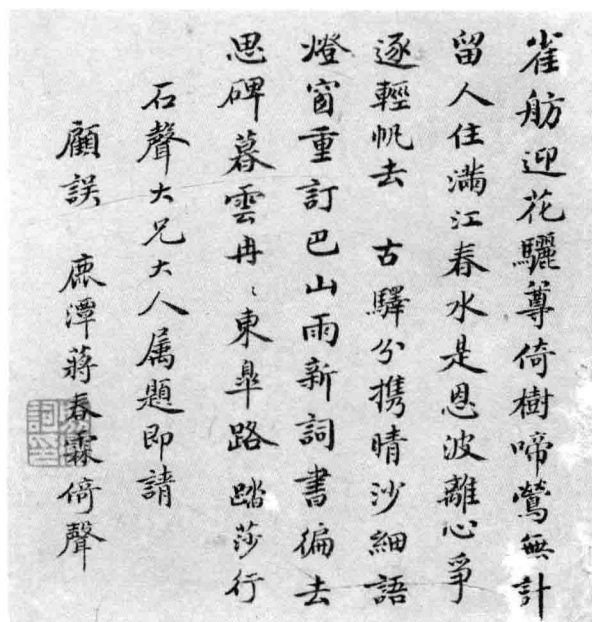 雀舫迎花驪尊倚樹啼鶯無計
留人住滿江春水是恩波離心爭
逐輕帆去　古驛分攜晴沙細語
燈窗重訂巴山雨新詞書徧去
思碑暮雲冉〻東臯路踏莎行
石聲大兄大人属題即請
顧誤　鹿潭蔣春霖倚聲